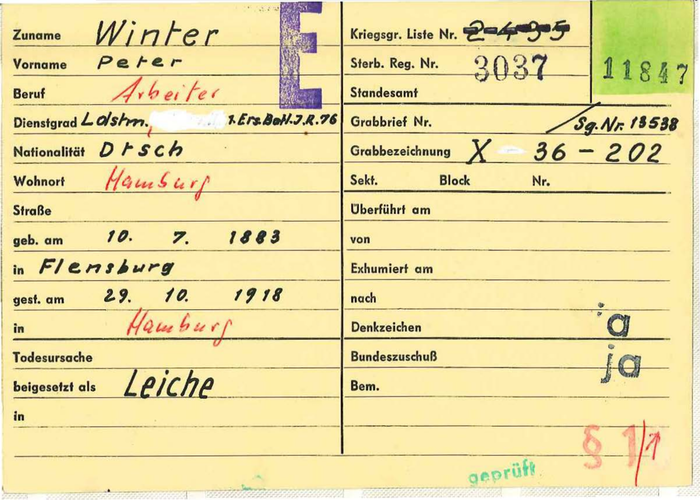 Zuname Winter
Vorname Peter
Beruf Arbeiter
Dienstgrad Ldstm. 1.Ers.Batl.J.R.76
Nationalität Dtsch
Wohnort Hamburg
Straße
geb. am 10. 7. 1883
in Flensburg
gest. am 29. 10. 1918
in Hamburg
Todesursache
beigesetzt als Leiche
in
E
Kriegsgr. Liste Nr. 2495
Sterb. Reg. Nr. 3037
Standesamt
11847
Grabbrief Nr. Sg.Nr. 13538
Grabbezeichnung X - 36 - 202
Sekt. Block Nr.
Überführt am
von
Exhumiert am
nach
Denkzeichen ja
Bundeszuschuß ja
Bem.
§ 1
geprüft